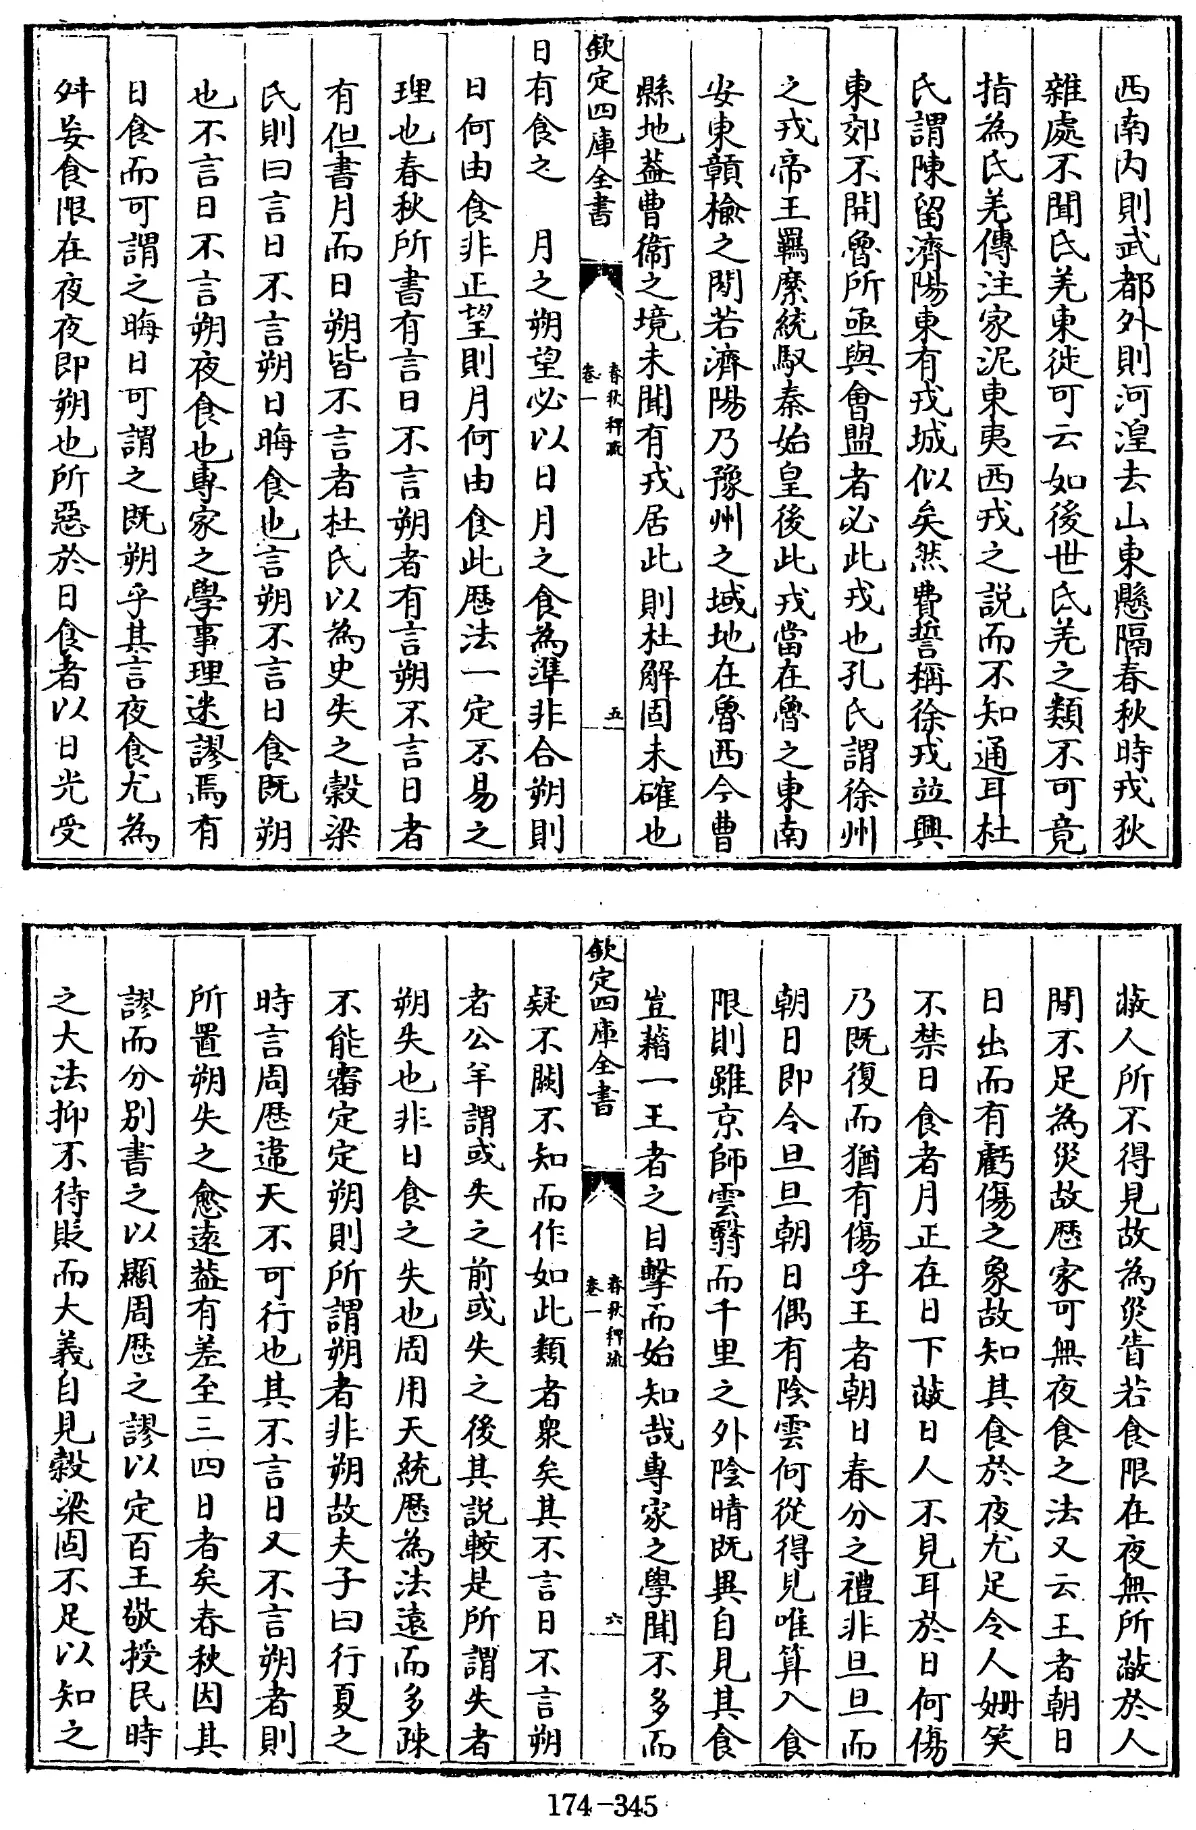 西南内則武都外則河湟去山東懸隔春秋時戎狄
雜處不聞氐羌東徙可云如後世氐羌之類不可竟
指為氐羌傳注家泥東夷西戎之説而不知通耳杜
氏謂陳留濟陽東有戎城似矣然費誓稱徐戎並興
東郊不開魯所亟與會盟者必此戎也孔氏謂徐州
之戎帝王羈縻統馭秦始皇後此戎當在魯之東南
安東贛榆之間若濟陽乃豫州之域地在魯西今曹
縣地葢曹衞之境未聞有戎居此則杜解固未確也
欽定四庫全書
春秋稗疏
卷一
五
日有食之　月之朔望必以日月之食為準非合朔則
日何由食非正望則月何由食此歴法一定不易之
理也春秋所書有言日不言朔者有言朔不言日者
有但書月而日朔皆不言者杜氏以為史失之穀梁
氏則曰言日不言朔日晦食也言朔不言日食既朔
也不言日不言朔夜食也專家之學事理迷謬焉有
日食而可謂之晦日可謂之既朔乎其言夜食尤為
舛妄食限在夜夜即朔也所惡於日食者以日光受
蔽人所不得見故為災眚若食限在夜無所蔽於人
間不足為災故歴家可無夜食之法又云王者朝日
日出而有虧傷之象故知其食於夜尤足令人姍笑
不禁日食者月正在日下蔽日人不見耳於日何傷
乃既復而猶有傷乎王者朝日春分之禮非旦旦而
朝日即令旦旦朝日偶有陰雲何從得見唯算入食
限則雖京師雲翳而千里之外陰晴既異自見其食
豈藉一王者之目擊而始知哉專家之學聞不多而
欽定四庫全書
春秋稗疏
卷一
六
疑不闕不知而作如此類者衆矣其不言日不言朔
者公羊謂或失之前或失之後其説較是所謂失者
朔失也非日食之失也周用天統歴為法遠而多疎
不能審定定朔則所謂朔者非朔故夫子曰行夏之
時言周歴違天不可行也其不言日又不言朔者則
所置朔失之愈遠葢有差至三四日者矣春秋因其
謬而分别書之以顯周歴之謬以定百王敬授民時
之大法抑不待貶而大義自見穀梁固不足以知之
174-345